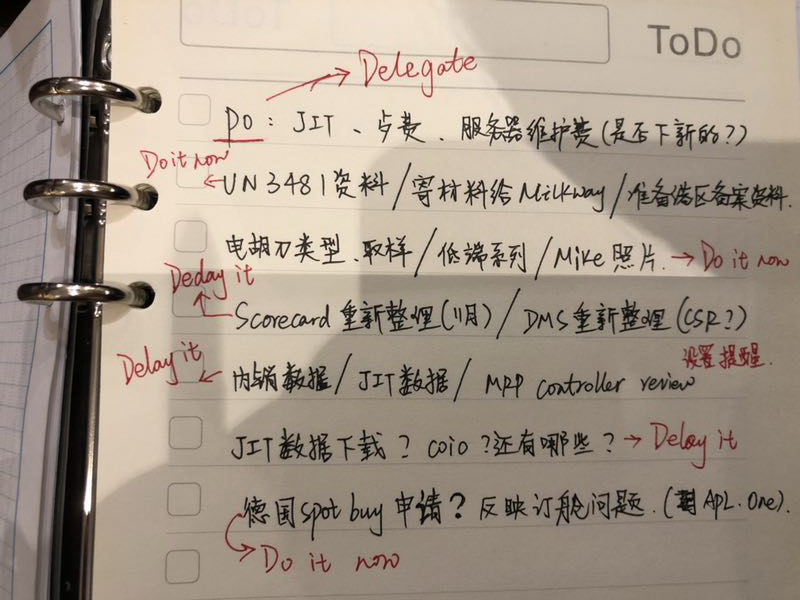 ToDo
Delegate
PO : JIT 、步费 、服务器维护费(是否下新的?)
Do it now
UN3481资料/寄材料给Milkway/准备港区备案资料.
电胡刀类型、取样/低端系列/Mike照片. → Do it now
Deday it
Scorecard重新整理(11月)/DMS重新整理(CSR?)
设置提醒.
Delay it
内销数据/JIT数据/MRP controller review
JIT数据下载? coio ?还有哪些? → Delay it
德国spot buy申请? 反映订舱问题. (APL.One).
Do it now